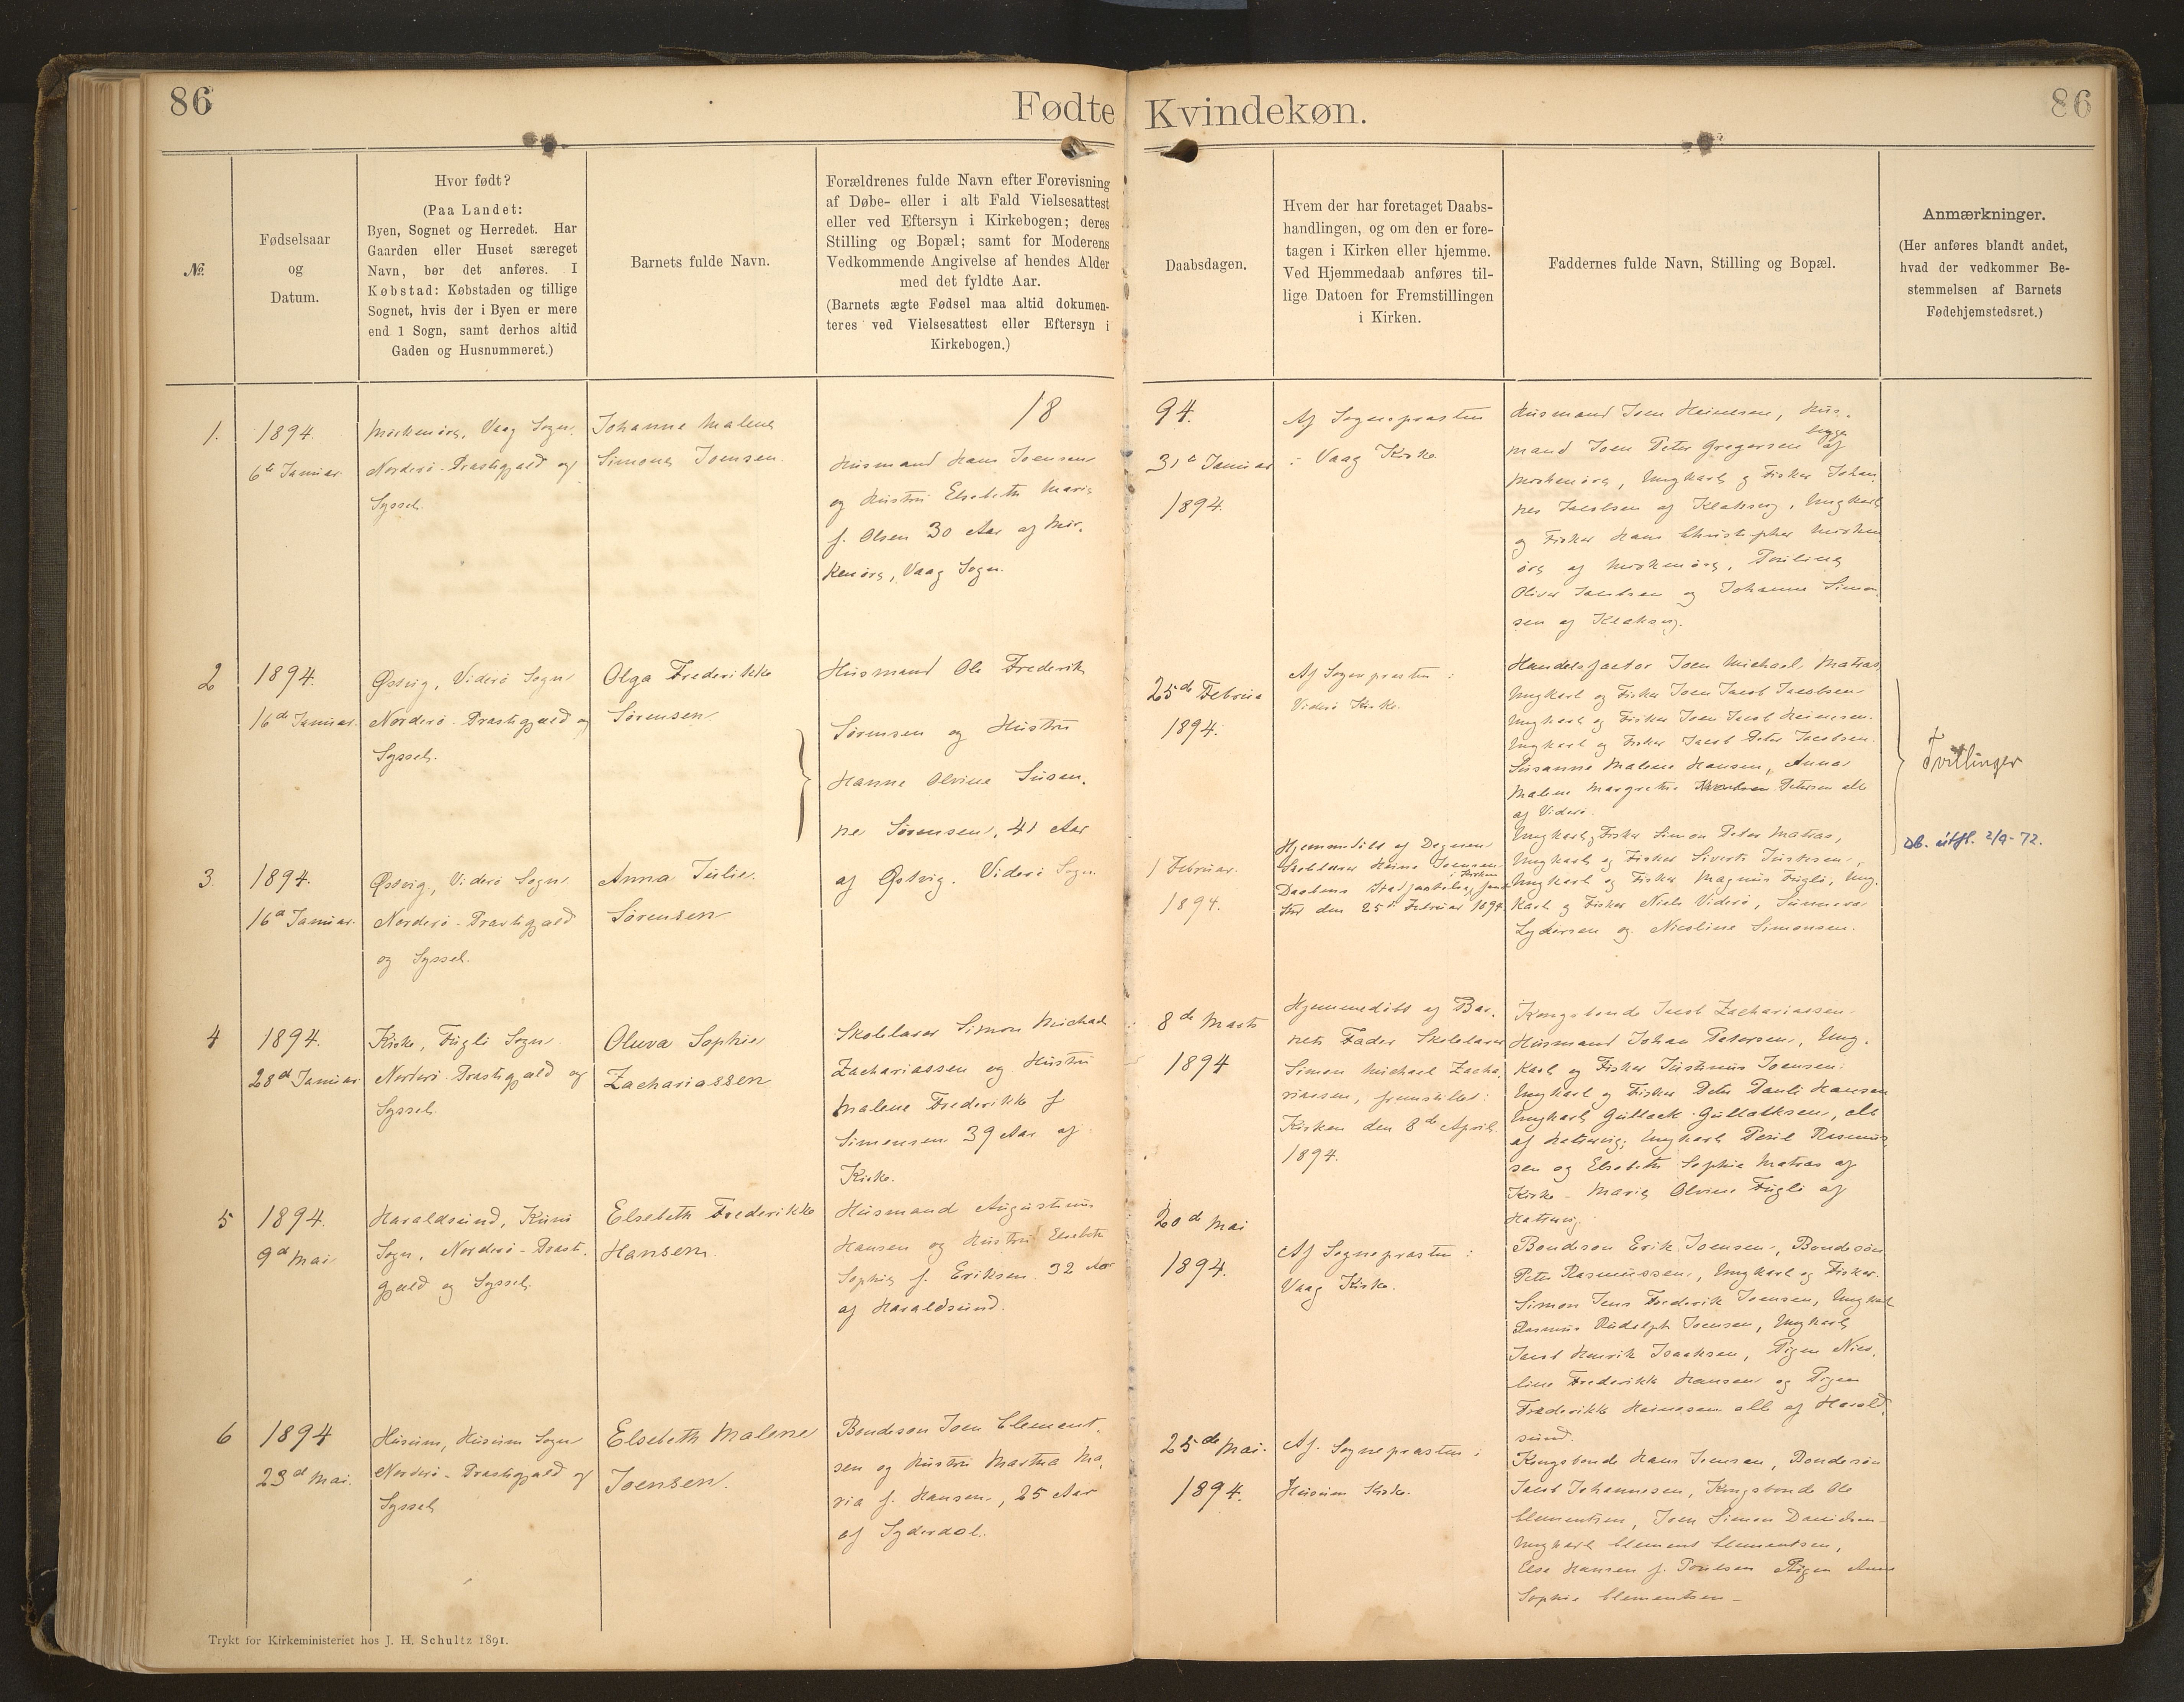 86
Fødte
Kvindekøn.
86
№.
Fødselsaar
og
Datum.
Hvor født?
(Paa Landet:
Byen, Sognet og Herredet. Har
Gaarden eller Huset særeget
Navn, bør det anføres. I
Købstad: Købstaden og tillige
Sognet, hvis der i Byen er mere
end 1 Sogn, samt derhos altid
Gaden og Husnummeret.)
Barnets fulde Navn.
Forældrenes fulde Navn efter Forevisning
af Døbe- eller i alt Fald Vielsesattest
eller ved Eftersyn i Kirkebogen; deres
Stilling og Bopæl; samt for Moderens
Vedkommende Angivelse af hendes Alder
med det fyldte Aar.
(Barnets ægte Fødsel maa altid dokumen-
teres ved Vielsesattest eller Eftersyn i
Kirkebogen.)
Daabsdagen.
Hvem der har foretaget Daabs-
handlingen, og om den er fore-
tagen i Kirken eller hjemme.
Ved Hjemmedaab anføres til-
lige Datoen for Fremstillingen
i Kirken.
Faddernes fulde Navn, Stilling og Bopæl.
Anmærkninger.
(Her anføres blandt andet,
hvad der vedkommer Be-
stemmelsen af Barnets
Fødehjemstedsret.)
18
94.
1.
1894.
6te Januar
Mørkenøre, Vaag Sogn,
Norderø-Præstegjæld og
Syssel.
Johanne Malene
Simone Joensen
Husmand Hans Joensen
og Hustru Elsebeth Marie
f. Olsen 30 Aar af Mør-
kenøre, Vaag Sogn.
31te Januar
1894.
Af Sognepræsten
i Vaag Kirke
Husmand Joen Heinesen, Hus-
mand Joen Peter Gregersen begge af
Mørkenøre, Ungkarl og Fisker Johan-
nes Jacobsen af Klaksvig, Ungkarl
og Fisker Hans Christopher Mørken
øre af Mørkenøre, Pouline
Jacobsen og Johanne Simon-
sen af Klaksvig.
2
1894.
16de Januar.
Østvig, Viderø Sogn
Norderø-Præstegjæld og
Syssel.
Olga Frederikke
Sørensen
Husmand Ole Frederik
Sørensen og Hustru
Hanne Olvine Susan-
ne Sørensen, 41 Aar
af Østvig. Viderø Sogn.
25de Februar
1894.
Af Sognepræsten i
Viderø Kirke.
Handelsfactor Joen Michael Matras
Ungkarl og Fisker Joen Jacob Jacobsen
Ungkarl og Fisker Joen Jacob Heinesen.
Ungkarl og Fisker Jacob Peter Jacobsen.
Susanne Malene Hansen, Anna
Malene Margrethe Petersen alle
af Viderø.
Tvillinger
3.
1894.
16de Januar.
Østvig, Viderø Sogn
Norderø-Præstegjæld
og Syssel.
Anna Julie
Sørensen
1 Februar.
1894.
Hjemmedøbt af Degnen
Skolelærer Heine Joensen
Daabens Stadfæstelse i Kirken fandt
Sted den 25de Februar 1894.
Ungkarl og Fisker Simon Peter Matras,
Ungkarl og Fisker Sivert Justesen,
Ungkarl og Fisker Magnus Fuglø, Ung-
karl og Fisker Niels Viderø, Sunneva
Lydersen og Nicoline Simonsen.
Db. útfl. 2/9-72.
4
1894.
28de Januar
Kirke, Fuglø Sogn
Norderø-Præstegjæld og
Syssel.
Oluva Sophie
Zachariassen
Skolelærer Simon Michael
Zachariassen og Hustru
Malene Frederikke f.
Simonsen 39 Aar af
Kirke.
8de Marts
1894
Hjemmedøbt af Bar-
nets Fader Skolelærer
Simon Michael Zacha-
riassen, fremstillet i
Kirken den 8de April
1894.
Kongsbonde Jacob Zachariassen,
Husmand Johan Petersen, Ung-
karl og Fisker Justinus Joensen.
Ungkarl og Fisker Peter Pauli Hansen
Ungkarl Gullack Gullacksen, alle
af Hattervig; Ungkarl Poul Rasmus-
sen og Elsebeth Sophie Matras af
Kirke - Marie Olvine Fuglø af
Hattervig.
5
1894.
9de Mai
Haraldsund, Kunø
Sogn, Norderø-Præste-
gjæld og Syssel.
Elsebeth Frederikke
Hansen.
Husmand Augustinus
Hansen og Hustru Elsebeth
Sophie f. Eriksen 32 Aar
af Haraldsund.
20de Mai
1894.
Af Sognepræsten i
Vaag Kirke.
Bondesøn Erik Joensen, Bondesøn
Peter Rasmussen, Ungkarl og Fisker
Simon Jens Frederik Joensen, Ungkarl
Rasmus Rudolph Joensen, Ungkarl
Jacob Henrik Isaaksen, Pigen Nico-
line Frederikke Hansen og Pigen
Frederikke Heinesen alle af Harald-
sund.
6
1894
23de Mai.
Husum, Husum Sogn
Norderø-Præstegjæld og
Syssel
Elsebeth Malene
Joensen.
Bondesøn Joen Clement-
sen og Hustru Martha Ma-
ria f. Hansen, 25 Aar
af Syderdal.
25de Mai.
1894.
Af Sognepræsten i
Husum Kirke.
Kongsbonde Hans Joensen, Bondesøn
Jacob Johannesen, Kongsbonde Ole
Clementsen, Joen Simon Davidsen
Ungkarl Clement Clementsen,
Else Hansen f. Poulsen Pigen Anne
Sophie Clementsen -
Trykt for Kirkeministeriet hos J. H. Schultz 1891.